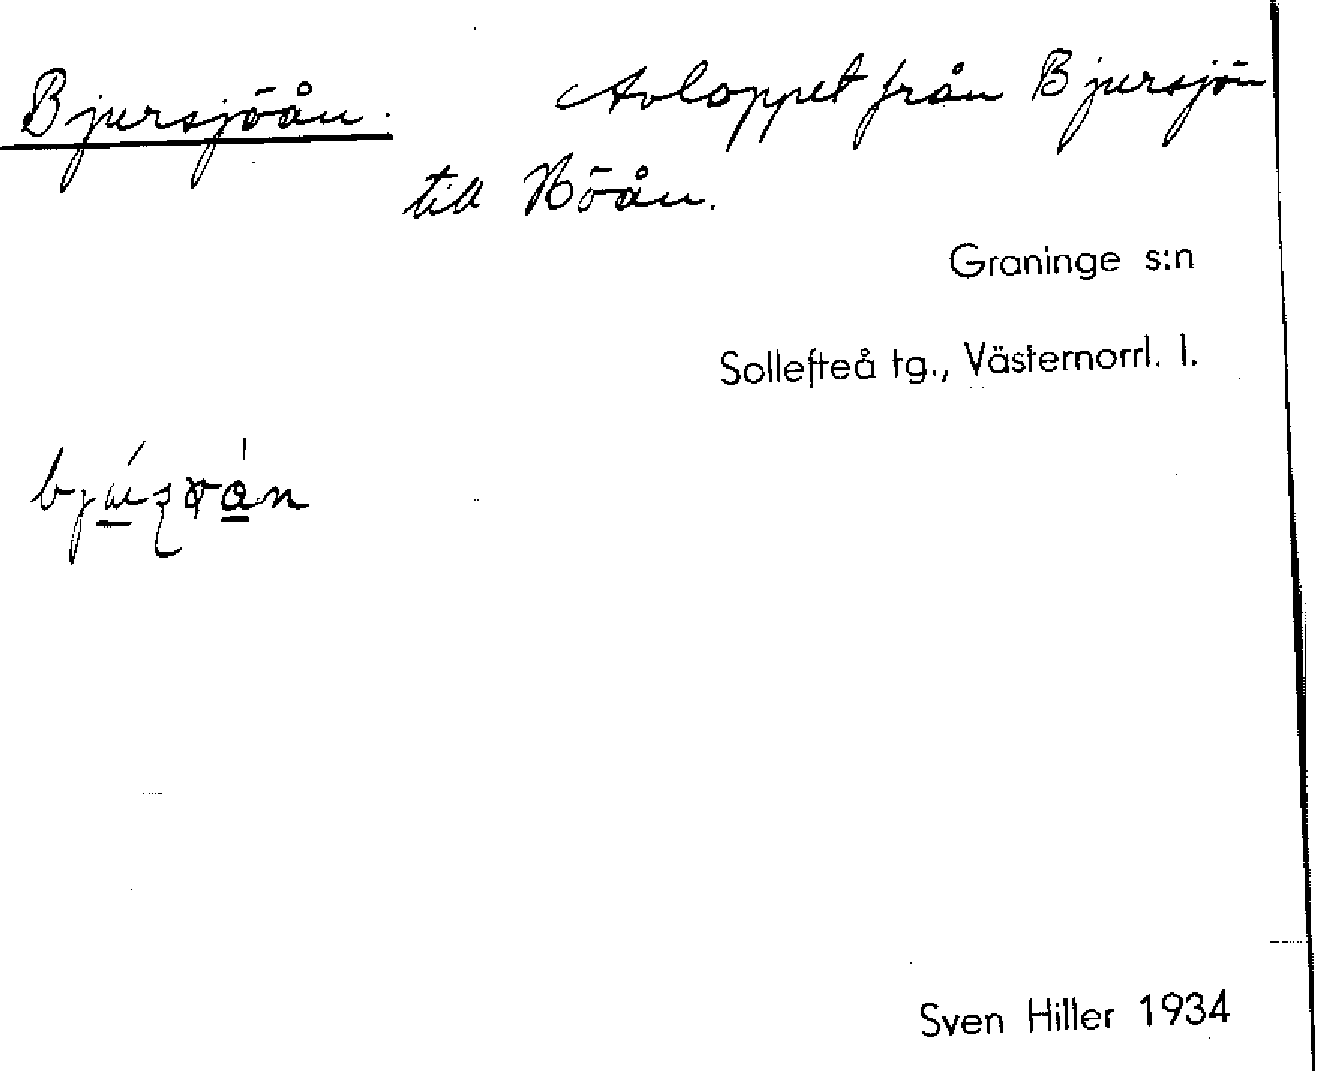 Bjursjöån. Avloppet från Bjursjön
till Höån.
Graninge s:n
Sollefteå tg., Västernorrl. l.
Sven Hiller 1934